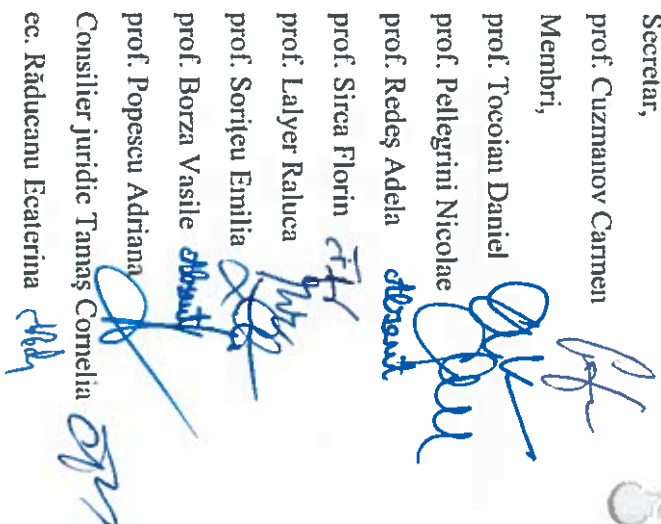 Secretar,
prof. Cuzmanov Carmen
Membri,
prof. Tocoian Daniel
prof. Pellegrini Nicolae
prof. Redeș Adela Absent
prof. Sirca Florin
prof. Lalyer Raluca
prof. Sorițeu Emilia
prof. Borza Vasile Absent
prof. Popescu Adriana
Consilier juridic Tamaș Cornelia
ec. Răducanu Ecaterina